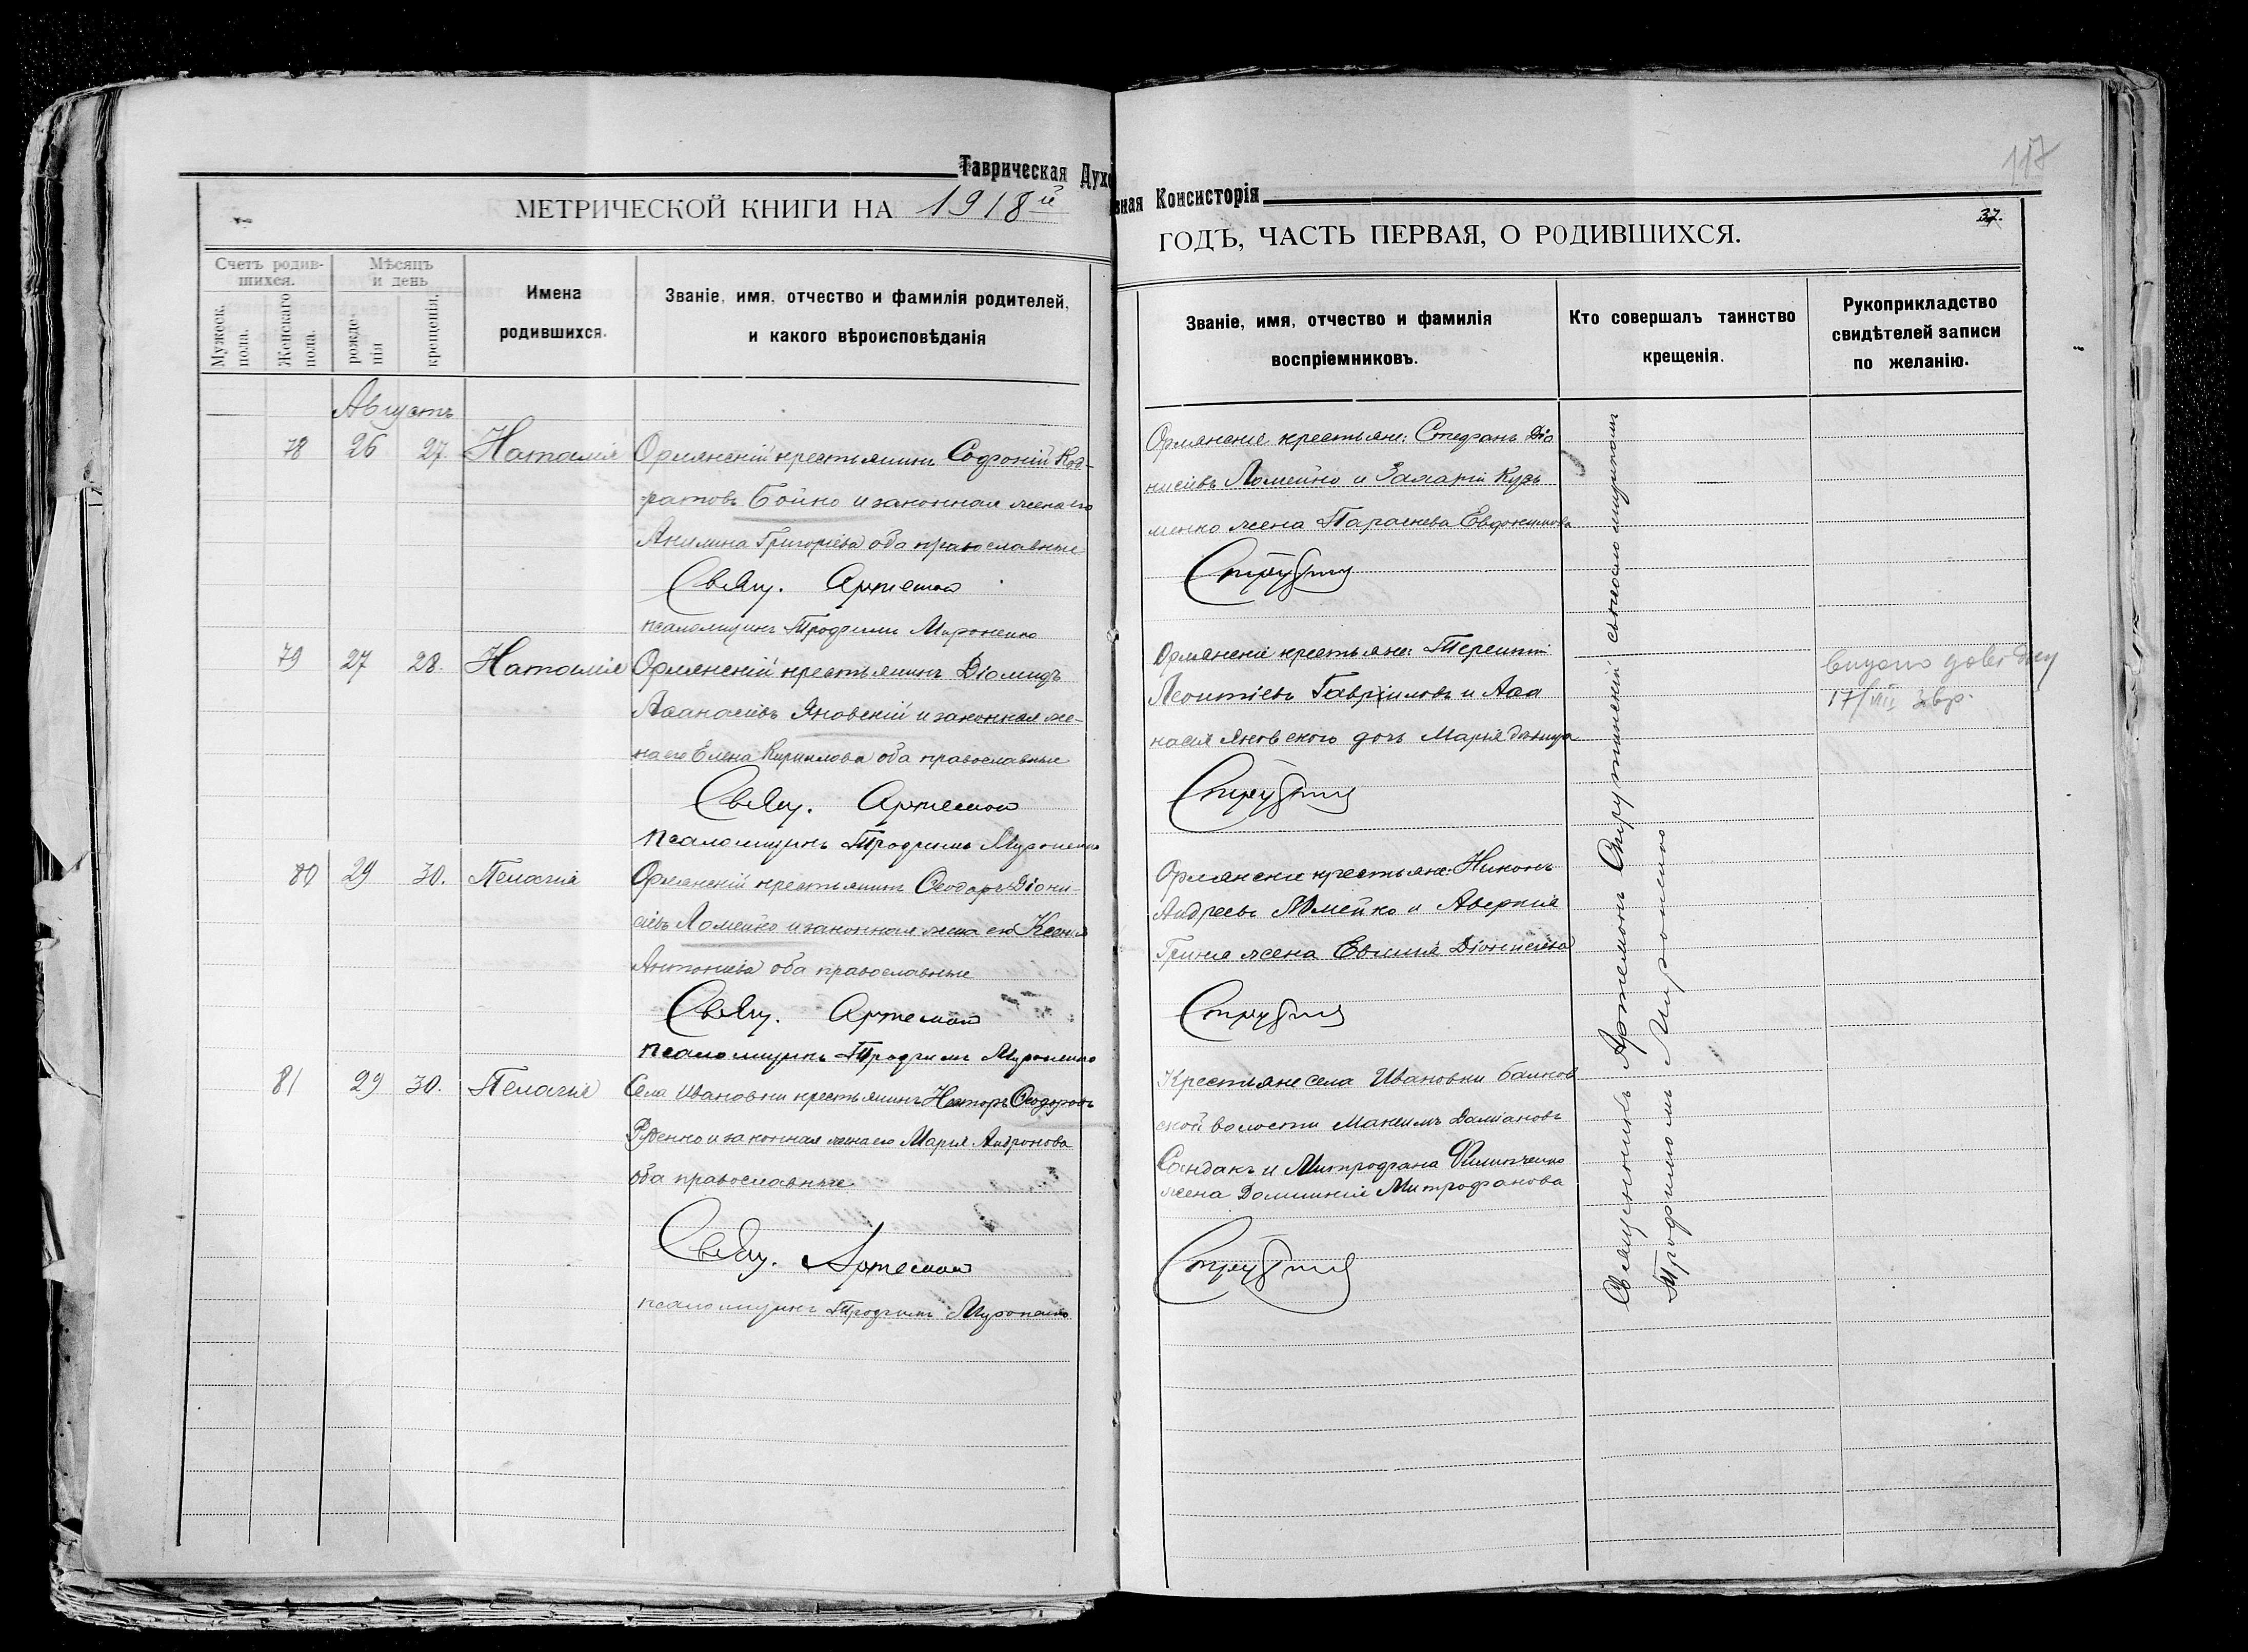 Таврическая Духовная Консисторія
117
МЕТРИЧЕСКОЙ КНИГИ НА 1918й
ГОДЪ, ЧАСТЬ ПЕРВАЯ, О РОДИВШИХСЯ.
37.
Счетъ родив-
шихся.
Мужеск.
пола.
Женскаго
пола.
Мѣсяцъ
и день
рожде-
нія
крещенія.
Имена
родившихся.
Званіе, имя, отчество и фамилія родителей,
и какого вѣроисповѣданія
Званіе, имя, отчество и фамилія
воспріемниковъ.
Кто совершалъ таинство
крещенія.
Рукоприкладство
свидѣтелей записи
по желанію.
Августъ
78 26 27 Наталія
Орлянскій крестьянинъ Софроній Код-
ратовъ Бойко и законная жена его
Акилина Григоріева оба православные
Свящ. Артемон
псаломщикъ Трофимъ Мироненко
Орлянскіе крестьяне: Стефанъ Діо
нисіевъ Ломейко и Захаріи Кузь
менко жена Параскева Евдокимова
79 27 28. Наталія
Орлянскій крестьянинъ Діомидъ
Аѳанасіевъ Яновскій и законная же-
на его Елена Кириллова оба православные
Свящ. Артемон
псаломщикъ Трофимъ Мироненко
Орлянскіе крестьяне: Терентій
Леонтіевъ Гавриловъ и Аѳа
насія Яновского дочь Марія девица
17/VII
80 29 30. Пелагія
Орлянскій крестьянинъ Ѳеодоръ Діони-
сіевъ Ломейко и законная жена его Ксенія
Антоніева оба православные
Свящ. Артемон
псаломщикъ Трофимъ Мироненко
Орлянскіе крестьяне Никонъ
Андреевъ Ломейко и Аверкія
жена Евфимія Діонисіева
81 29 30. Пелагія
Села Ивановки крестьянинъ Несторъ Ѳеодоровъ
Руденко и законная жена его Марія Андронова
оба православные
Свящ. Артемон
псаломщикъ Трофимъ Мироненко
Крестьяне села Ивановки Балков
ской волости Максимъ Даміановъ
и Митрофана Филипченко
жена Домникія Митрофанова
Священникъ Артемонъ съ псаломщикомъ
Трофимомъ Мироненко